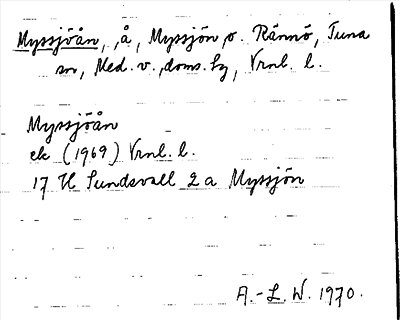 Myssjöån, å, Myssjön o. Rännö, Tuna
sn, Med. v. doms. hg, Vrnl. l.
Myssjöån
ek (1969) Vrnl. l.
17 H Sundsvall 2 a Myssjön
A.-L. W. 1970.